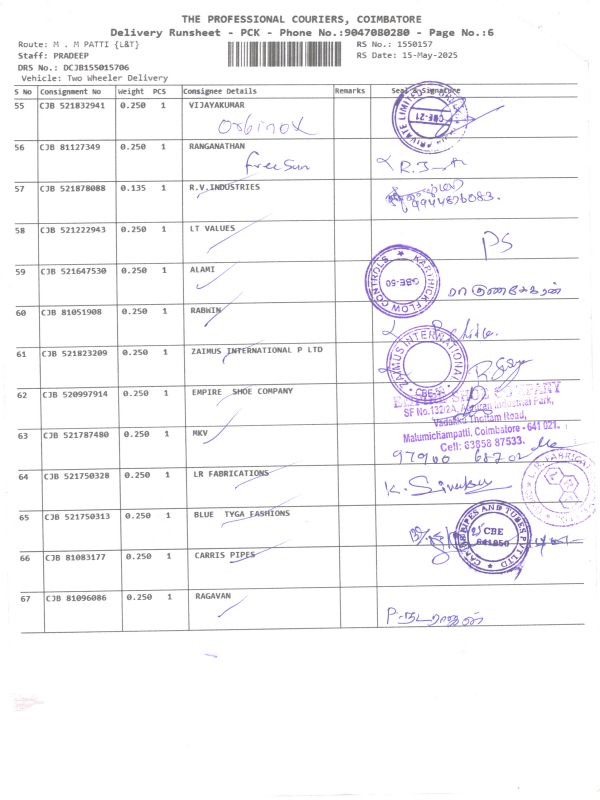 THE PROFESSIONAL COURIERS, COIMBATORE
Delivery Runsheet - PCK - Phone No.:9047080280 - Page No.:6
Route: M . M PATTI {L&T}
RS No.: 1550157
Staff: PRADEEP
RS Date: 15-May-2025
DRS No.: DCJB155015706
Vehicle: Two Wheeler Delivery
S No Consignment No Weight PCS Consignee Details Remarks Seal & Signature
55 CJB 521832941 0.250 1 VIJAYAKUMAR
Orbinox
CBE-21
56 CJB 81127349 0.250 1 RANGANATHAN
Free Sun
57 CJB 521878088 0.135 1 R.V.INDUSTRIES
9944826083.
58 CJB 521222943 0.250 1 LT VALUES
PS
59 CJB 521647530 0.250 1 ALAMI
KARTHICK FLOW CONTROLS
CBE-50
மா குணசேகரன்
60 CJB 81051908 0.250 1 RABWIN
61 CJB 521823209 0.250 1 ZAIMUS INTERNATIONAL P LTD
ZAIMUS INTERNATIONAL
62 CJB 520997914 0.250 1 EMPIRE SHOE COMPANY
EMPIRE SHOE COMPANY
SF No.132/2A, Industrial Park,
Vadakku Thottam Road,
Malumichampatti, Coimbatore - 641 021.
Cell: 63858 87533.
63 CJB 521787480 0.250 1 MKV
64 CJB 521750328 0.250 1 LR FABRICATIONS
K. Sivakumar
65 CJB 521750313 0.250 1 BLUE TYGA FASHIONS
66 CJB 81083177 0.250 1 CARRIS PIPES
CARRIS PIPES AND TUBES PVT LTD
CBE
641050
67 CJB 81096086 0.250 1 RAGAVAN
P. நடராஜன்